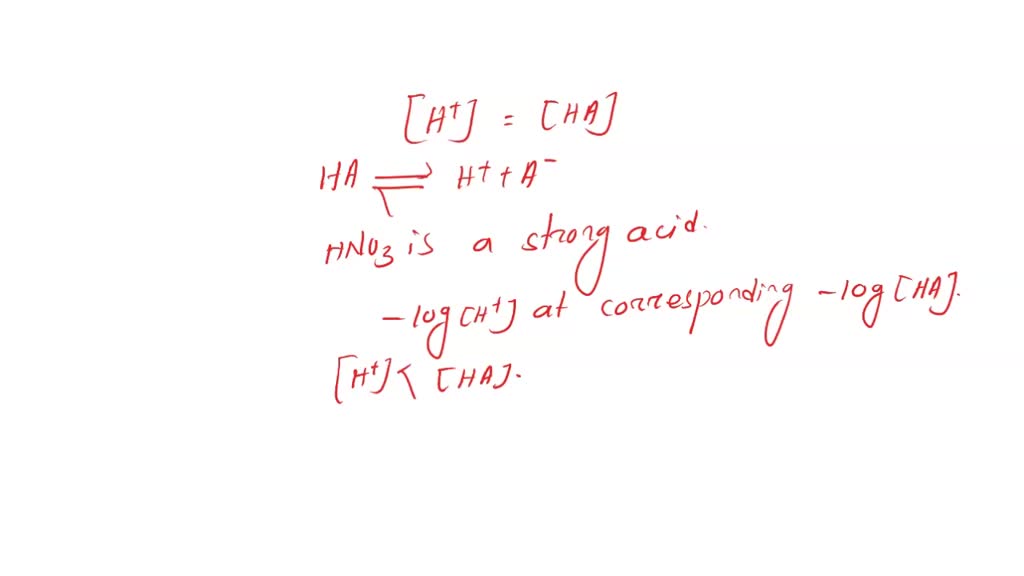 [H⁺] = [HA]
HA ⇌ H⁺ + A⁻
HNO₃ is a strong acid.
-log[H⁺] at corresponding -log[HA].
[H⁺] < [HA].